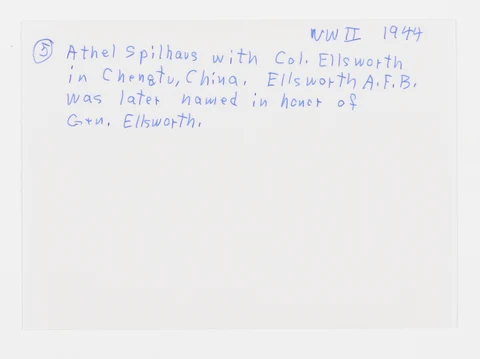 WW II 1944
⑤ Athel Spilhaus with Col. Ellsworth
in Chengtu, China. Ellsworth A.F.B.
was later named in honor of
Gen. Ellsworth.